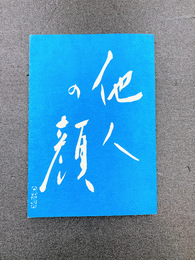 他人
の
顔